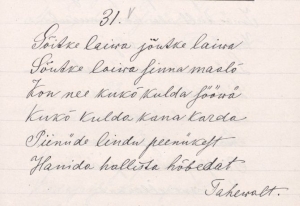 31.
Sõitke laiwa jõutke laiwa
Sõutke laiwa sinna maalõ
Kon nee kukõ kulda sööwä
Kukõ kulda kana karda
Pienüde lindu peenükest
Hanida hallista hõbedat
Tahewalt.